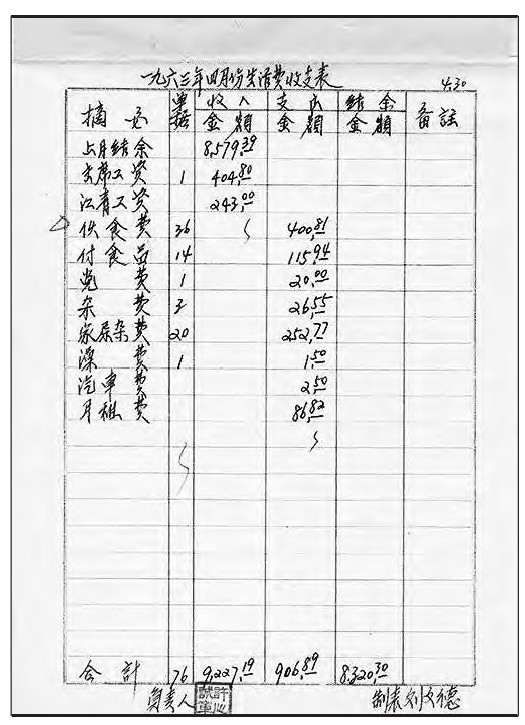 一九六三年四月份生活费收支表
4.30
摘要 單据 收入 支出 结余 备註
金額 金額 金額
上月结余 8,579.39
主席工资 1 404.80
江青工资 243.00
伙食费 36 400.81
付食品 14 115.94
党费 1 20.00
杂费 3 26.55
家屬杂费 20 252.77
澡费 1 1.50
汽車费 2.50
月租费 86.82
合計 76 9,227.19 906.89 8,320.30
負責人 制表刘文德